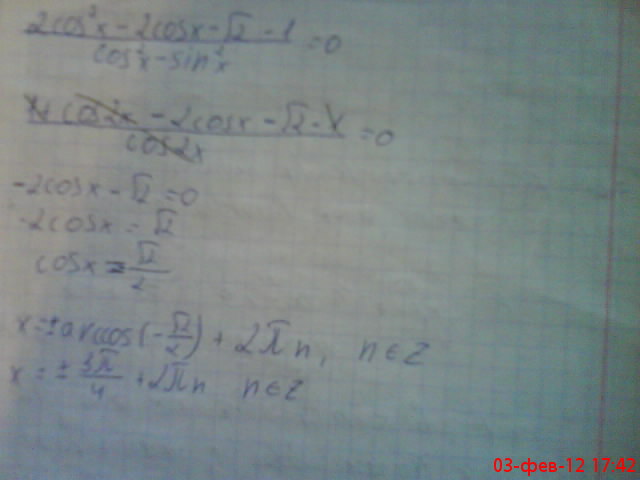 2cos²x - 2cosx - √2 - 1 / cos²x - sin²x = 0
1 + cos2x - 2cosx - √2 - 1 / cos2x = 0
-2cosx - √2 = 0
-2cosx = √2
cosx = -√2/2
x = ± arccos(-√2/2) + 2πn, n ∈ Z
x = ± 3π/4 + 2πn n ∈ Z
03-фев-12 17:42